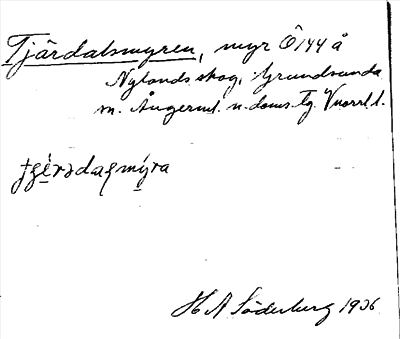 Tjärdalsmyren, myr Ö 144 å
Nylands skog, Grundsunda
sn. Ångerml. n. doms. Tg. Vnorrl. l.
H A Söderberg 1936